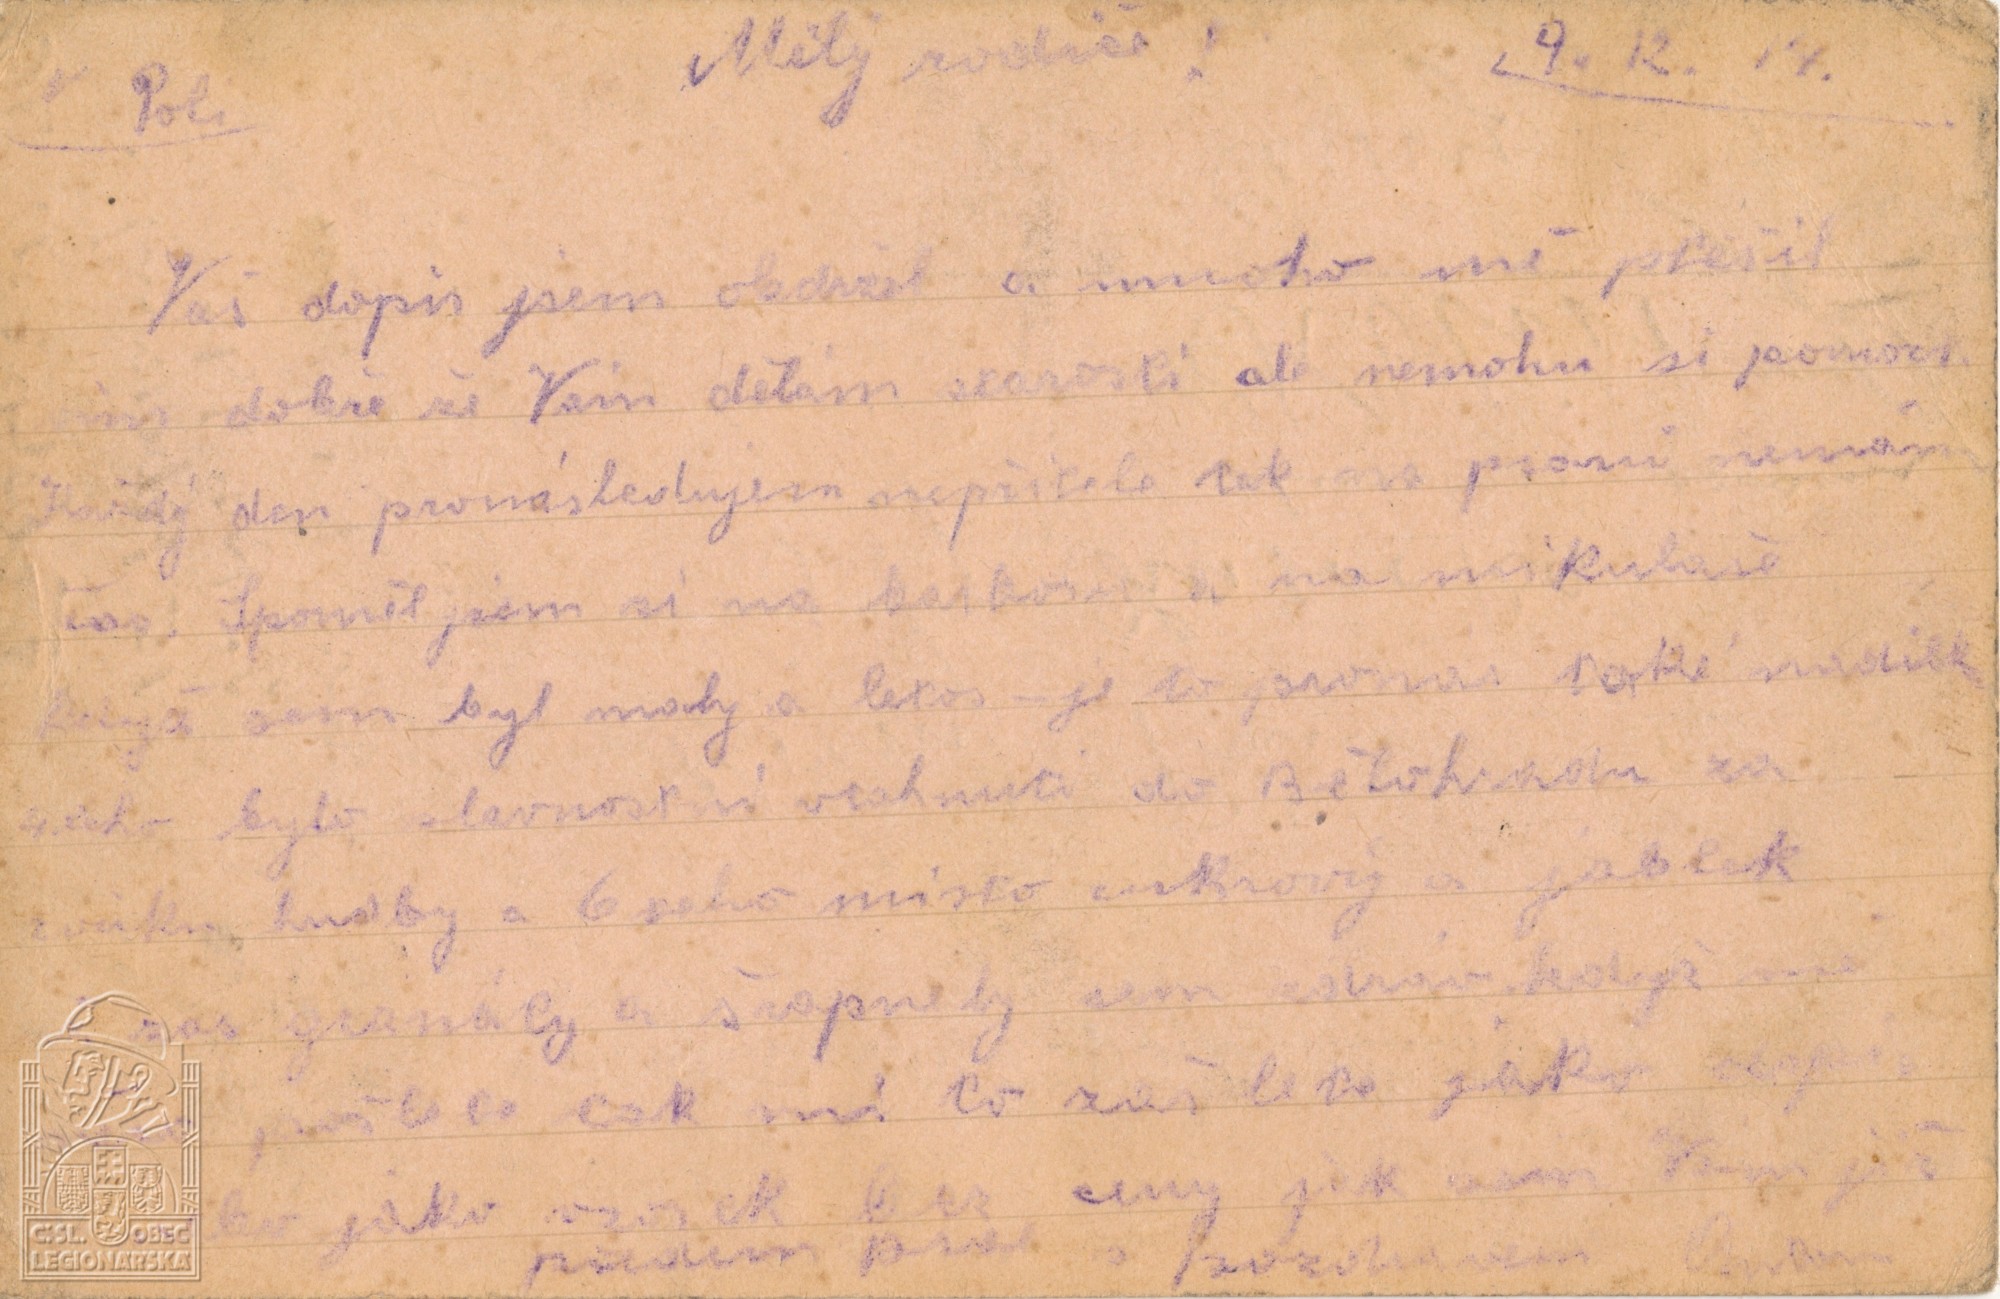 V Poli
Milý rodiče!
9. 12. 14.
Váš dopis jsem obdržel a mnoho mě přěšil
vím dobře že Vám dělám starosti ale nemohu si pomoct
Každý den pronásledujem nepřítele tak na psaní nemám
čas. Spoměl jsem si na a na mikulaše
když sem byl maly a letos je to pronas také nadilk
bylo slavnostní vtahnutí do Bělohradu za
zvuku hudby a 6 teho místo cukrový a jablek
zas granáty a šrapnely sem zdráv když mě
pošlete tak mi to zašlete jako
bo jako vzorek bez ceny jak sem Vám již
předem psal s pozdravem
ČSL. OBEC
LEGIONÁŘSKÁ